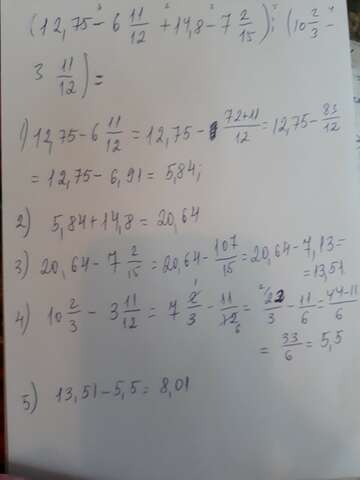 (12,75 - 6 11/12 + 14,8 - 7 2/15) : (10 2/3 -
3 11/12) =
1) 12,75 - 6 11/12 = 12,75 - (72+11)/12 = 12,75 - 83/12
= 12,75 - 6,91 = 5,84;
2) 5,84 + 14,8 = 20,64
3) 20,64 - 7 2/15 = 20,64 - 107/15 = 20,64 - 7,13 =
= 13,51.
4) 10 2/3 - 3 11/12 = 7 2/3 - 11/12 = 22/3 - 11/6 = (44-11)/6
= 33/6 = 5,5
5) 13,51 - 5,5 = 8,01